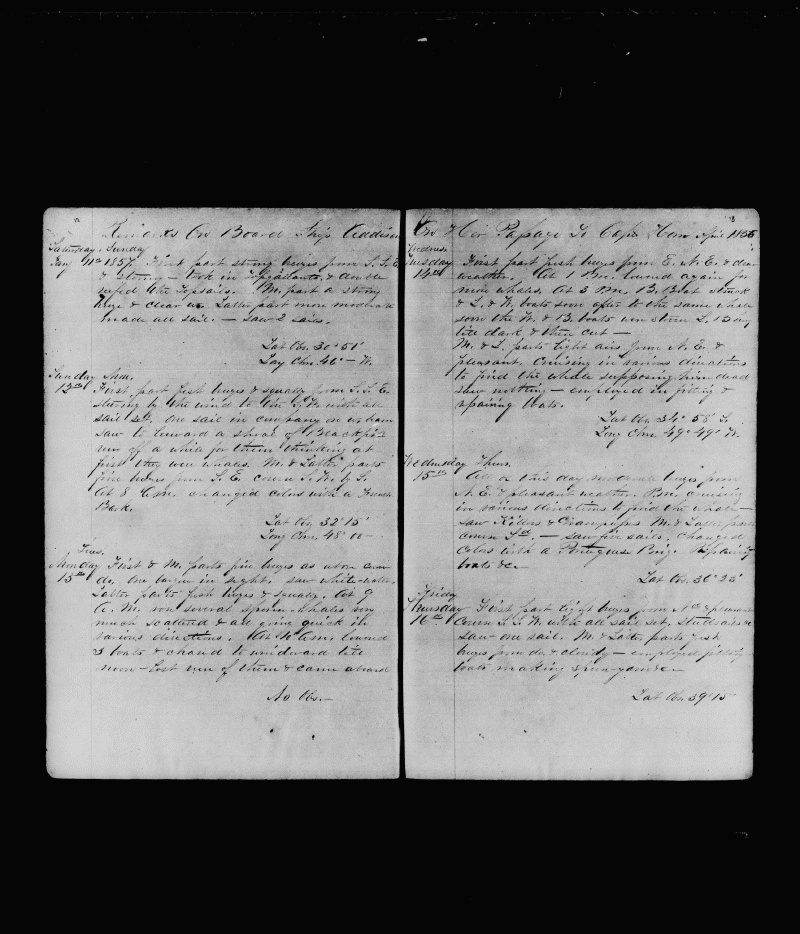 Remarks On Board Ship Addison
Saturday, Sunday
Jany 11th 1857. First part strong breezes from S. S. E.
& strong — took in Topgallants, & double
reefed the Topsails. M. part a strong
breeze & clear Latter part more moderate
made all sail. — Saw 2 sails.
Lat Obs. 30° 51'
Long Chr. 46° — W.
Sunday Mon.
12th First part fresh breezes & squally from S. S. E.
steering by the wind to the S. W. with all
sail set. One sail in company on weather
Saw to leeward a shoal of Blackfish
ran off a while for them thinking at
first they were whales. M. & Latter parts
fine breezes from S. E. course S. W. by S.
At 8 A.M. exchanged colors with a French
Bark.
Lat Obs. 32° 15'
Long Chr. 48° 00 —
Tues.
Monday First & M. parts fine breezes as above course
13th do. One in sight. saw white-water.
Latter parts fresh breezes & squally. At 9
A. M. saw several sperm-whales very
much scattered & all going quick in
various directions. At 10 A.M. lowered
3 boats & chased to windward till
noon — lost run of them & came aboard
No Obs. —
On Her Passage To Cape Horn 1856
Wednes.
Tuesday First part fresh breezes from E. N. E. & clear
14th weather. At 1 P.M. lowered again for
more whales. At 3 P.M. B. Boat struck
& S. & W. boats soon after to the same whale
soon the W. & B. boats were stove L. B.
till dark & then cut —
M. & L. parts light airs from N. E. &
pleasant. Cruising in various directions
to find the whale supposing him dead
saw nothing — employed in fitting &
repairing boats.
Lat Obs. 34° 58' S.
Long Chr. 49° 49' W.
Wednesday Thurs.
15th All of this day moderate breezes from
N. E. & pleasant weather. P.M. cruising
in various directions to find the whale —
saw Killers & Grampuses M. & Latter parts
course Sd. — saw five sails. Exchanged
Colors with a Portuguese Brig. Repairing
boats &c —
Lat Obs. 36° 25'
Friday
Thursday First part light breezes from Nd. & pleasant
16th Course S. S. W. with all sail set, Studdsails
saw one sail. M. & Latter parts fresh
breezes from do. & cloudy — employed fitting
boats making spun-yarn &c —
Lat Obs. 39° 15'